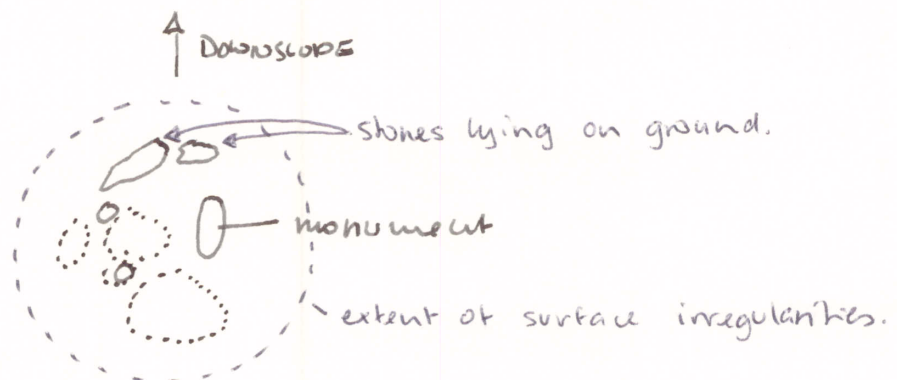 DOWNSLOPE
stones lying on ground.
monument
extent of surface irregularities.